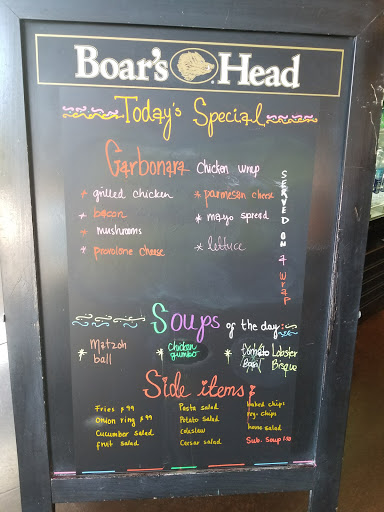 Boar's Head
Today's Special
Carbonara Chicken wrap
* grilled chicken
* bacon
* mushrooms
* provolone cheese
* parmesan cheese
* mayo spread
* lettuce
SERVED ON A Wrap
Soups of the day:
* Matzoh ball
* Chicken gumbo
* Tomato Basil
Lobster Bisque
Side items:
Fries $.99
Onion ring $.99
Cucumber salad
fruit salad
Pasta salad
Potato salad
Coleslaw
Cesar salad
baked chips
reg. chips
house salad
Sub. Soup